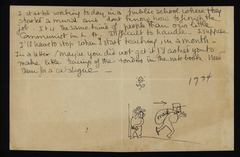 I started working today, in a public school where they
started a mural and don't know how to finish the
job. It's the same kind of people than our little
Communist in L. to difficult to handle. I suppose
I'll have to stop when I start teaching, in a month.
In a letter (maybe you did not get it) I asked you to
make little of the in the note book. New
them to a catalogue
1934